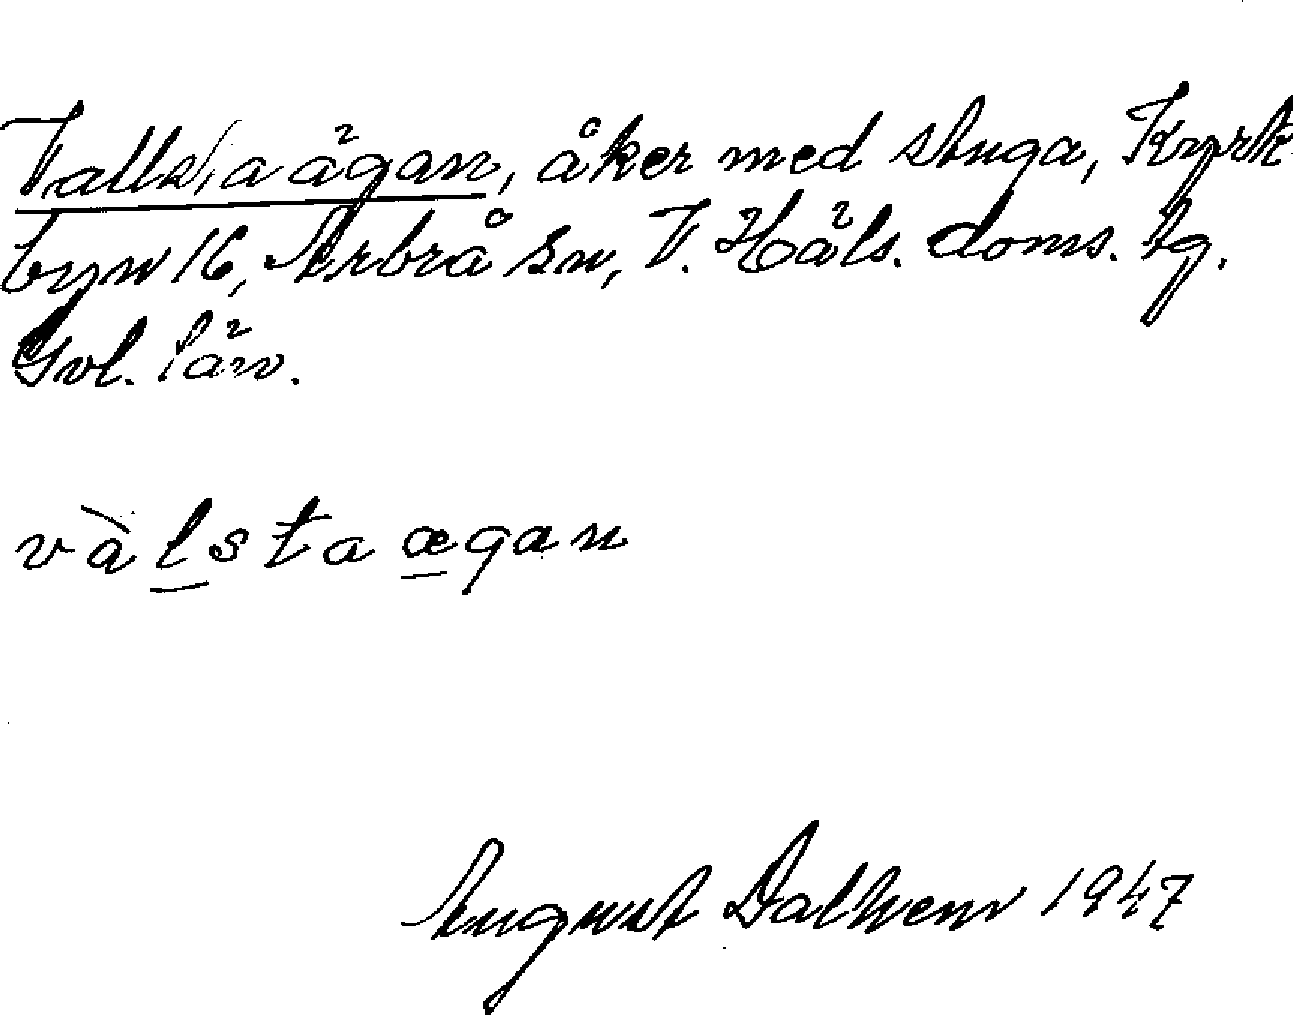 Vallstaägan, åker med stuga, Kyrk-
byn 16, Arbrå sn, V. Häls. doms. tg.
Gvl. län.
vàlsta ægan
August Dalhem 1947